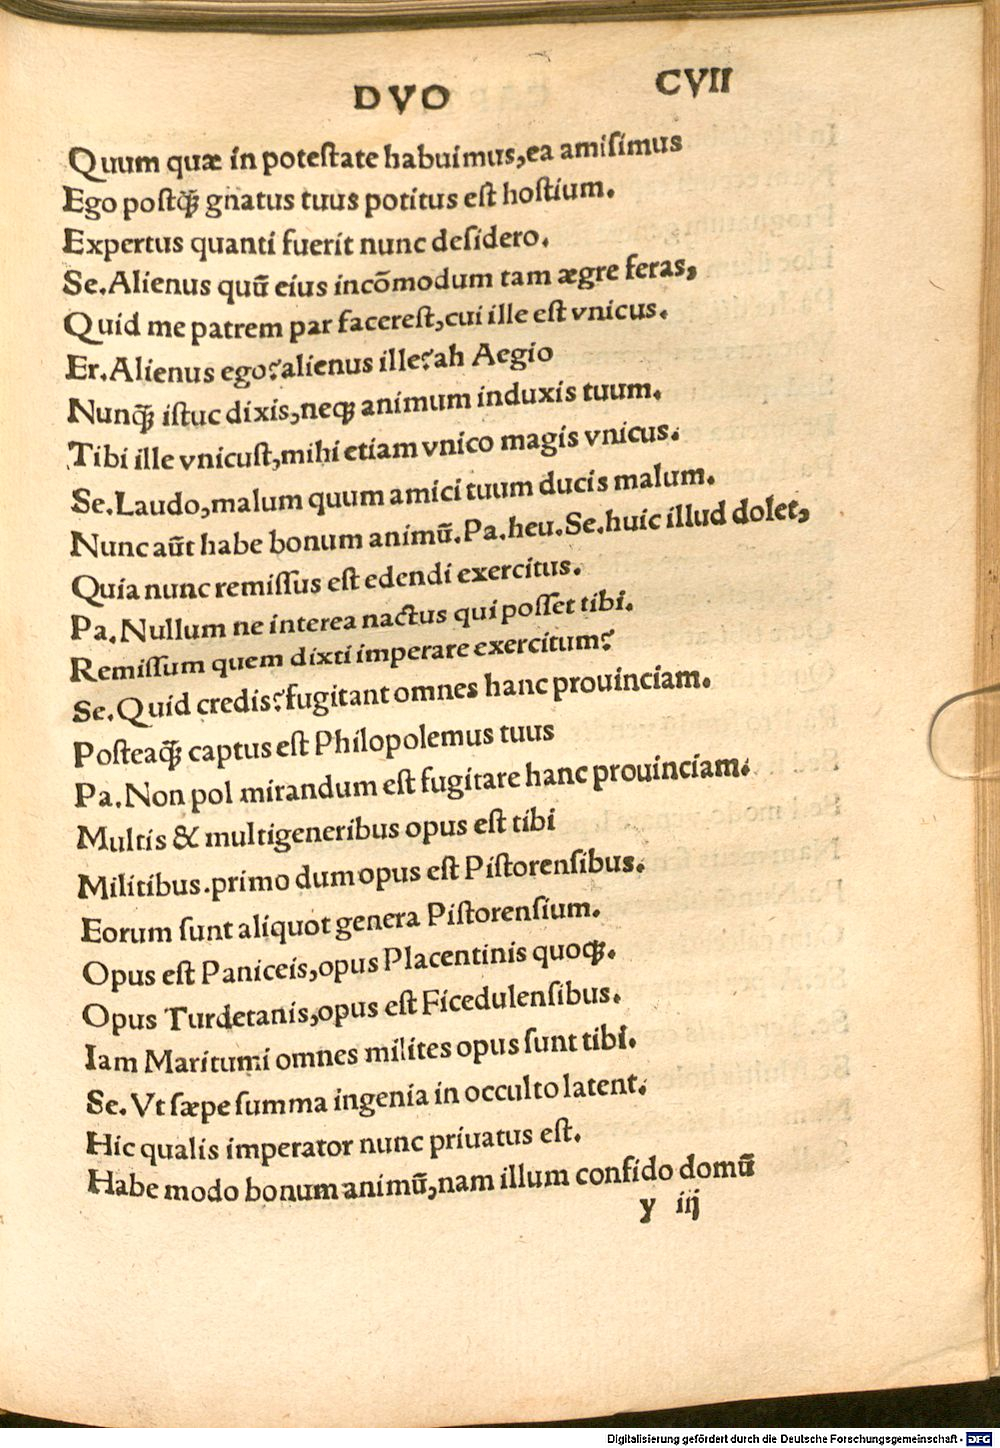 DVO CVII
Quum quæ in poteſtate habuimus,ea amiſimus
Ego poſtq̃ gnatus tuus potitus eſt hoſtium.
Expertus quanti fuerit nunc deſidero.
Se.Alienus quũ eius incõmodum tam ægre feras,
Quid me patrem par facereſt,cui ille eſt vnicus.
Er.Alienus ego?alienus ille?ah Aegio
Nunq̃ iſtuc dixis,neqꝫ animum induxis tuum.
Tibi ille vnicuſt,mihi etiam vnico magis vnicus.
Se.Laudo,malum quum amici tuum ducis malum.
Nunc aũt habe bonum animũ.Pa.heu.Se.huic illud dolet,
Quia nunc remiſſus eſt edendi exercitus.
Pa.Nullum ne interea nactus qui poſſet tibi.
Remiſſum quem dixti imperare exercitum?
Se.Quid credis?fugitant omnes hanc prouinciam.
Poſteaq̃ captus eſt Philopolemus tuus
Pa.Non pol mirandum eſt fugitare hanc prouinciam.
Multis & multigeneribus opus eſt tibi
Militibus.primo dum opus eſt Piſtorenſibus.
Eorum ſunt aliquot genera Piſtorenſium.
Opus eſt Paniceis,opus Placentinis quoqꝫ.
Opus Turdetanis,opus eſt Ficedulenſibus.
Iam Maritumi omnes milites opus ſunt tibi.
Se.Vt ſæpe ſumma ingenia in occulto latent.
Hic qualis imperator nunc priuatus eſt.
Habe modo bonum animũ,nam illum confido domũ
y iij
Digitalisierung gefördert durch die Deutsche Forschungsgemeinschaft - DFG